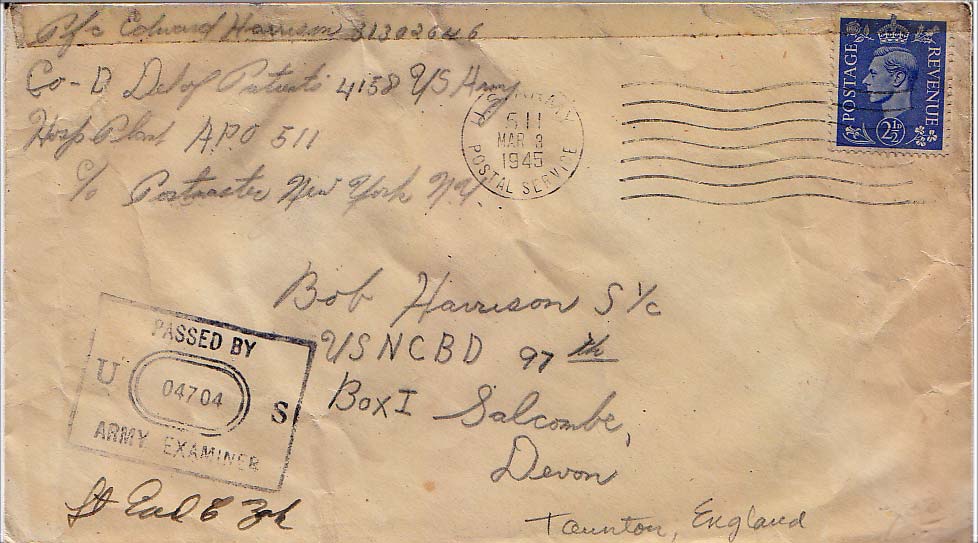 Pfc Edward Harrison 31302646
Co-D Det of Patients 4158 US Army
Hosp Plant APO 511
c/o Postmaster New York N.Y.
511
MAR 3
1945
POSTAL SERVICE
POSTAGE REVENUE
2½D
Bob Harrison S 1/c
USNCBD 97th
Box I Salcombe,
Devon
Taunton, England
PASSED BY
U 04704 S
ARMY EXAMINER
Lt Earl E